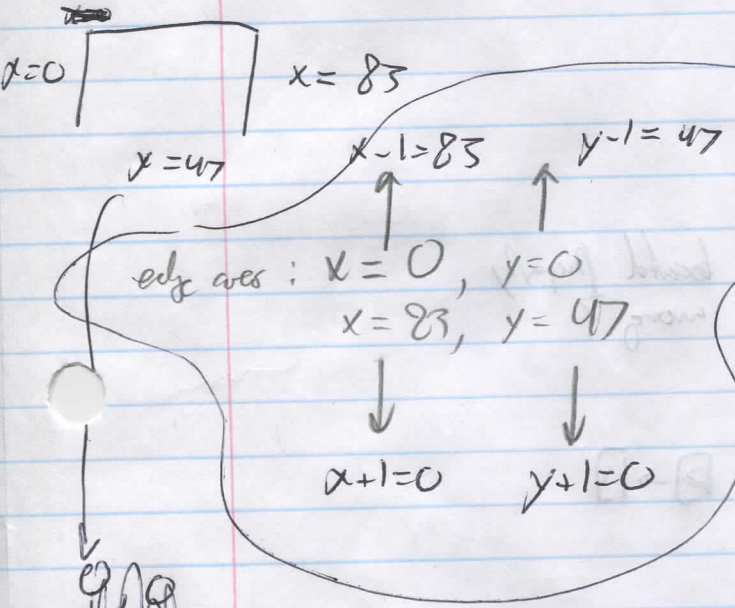 x=0
x = 83
y = 47
x-1=83
y-1=47
edge cases : x = 0, y=0
x = 83, y = 47
x+1=0
y+1=0